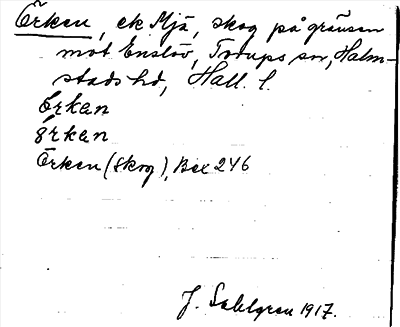 Örken, ek Mjä, skog på gränsen
mot Enslöv, Torups sn, Halm-
stads hd, Hall. l.
Örkan
Örkan
Örken (skog), Bex 246
J. Sahlgren 1917.